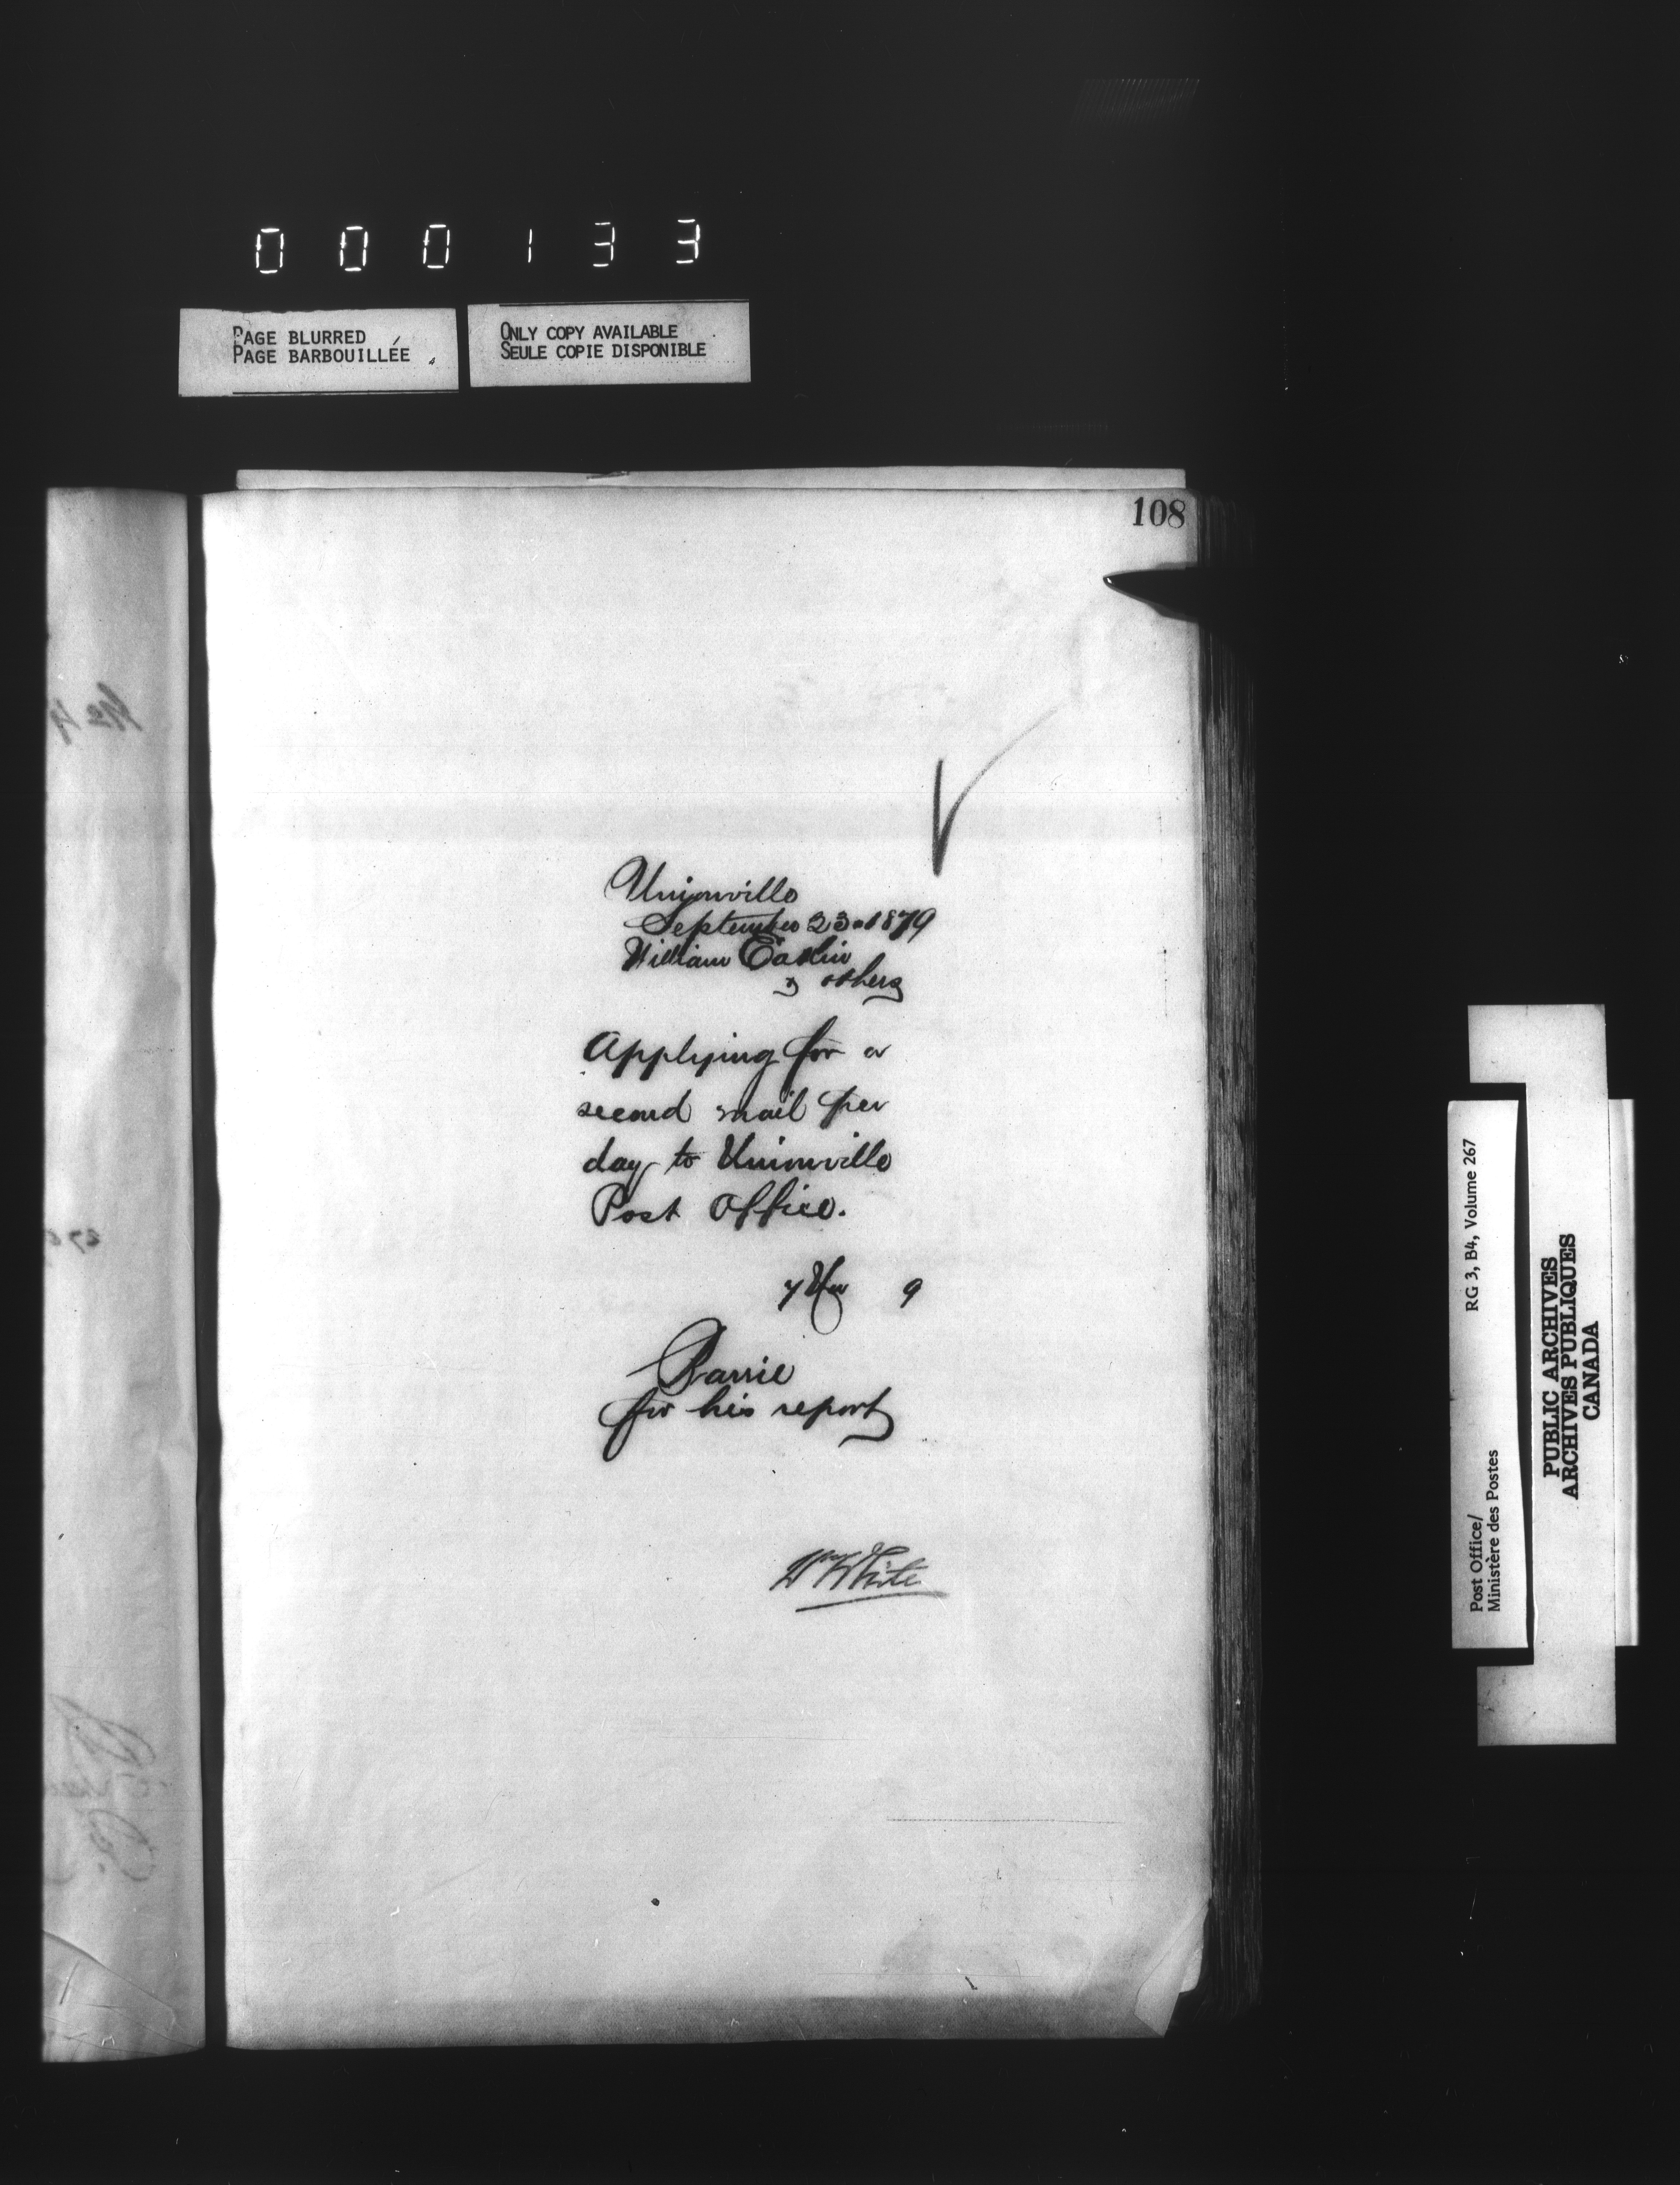 000133
PAGE BLURRED
PAGE BARBOUILLÉE
ONLY COPY AVAILABLE
SEULE COPIE DISPONIBLE
108
Unionville
September 23 1879
William Eakin
& others
Applying for a
second mail per
day to Unionville
Post Office.
9
Barrie
for his report
Wm White
RG 3, B4, Volume 267
Post Office/
Ministère des Postes
PUBLIC ARCHIVES
ARCHIVES PUBLIQUES
CANADA